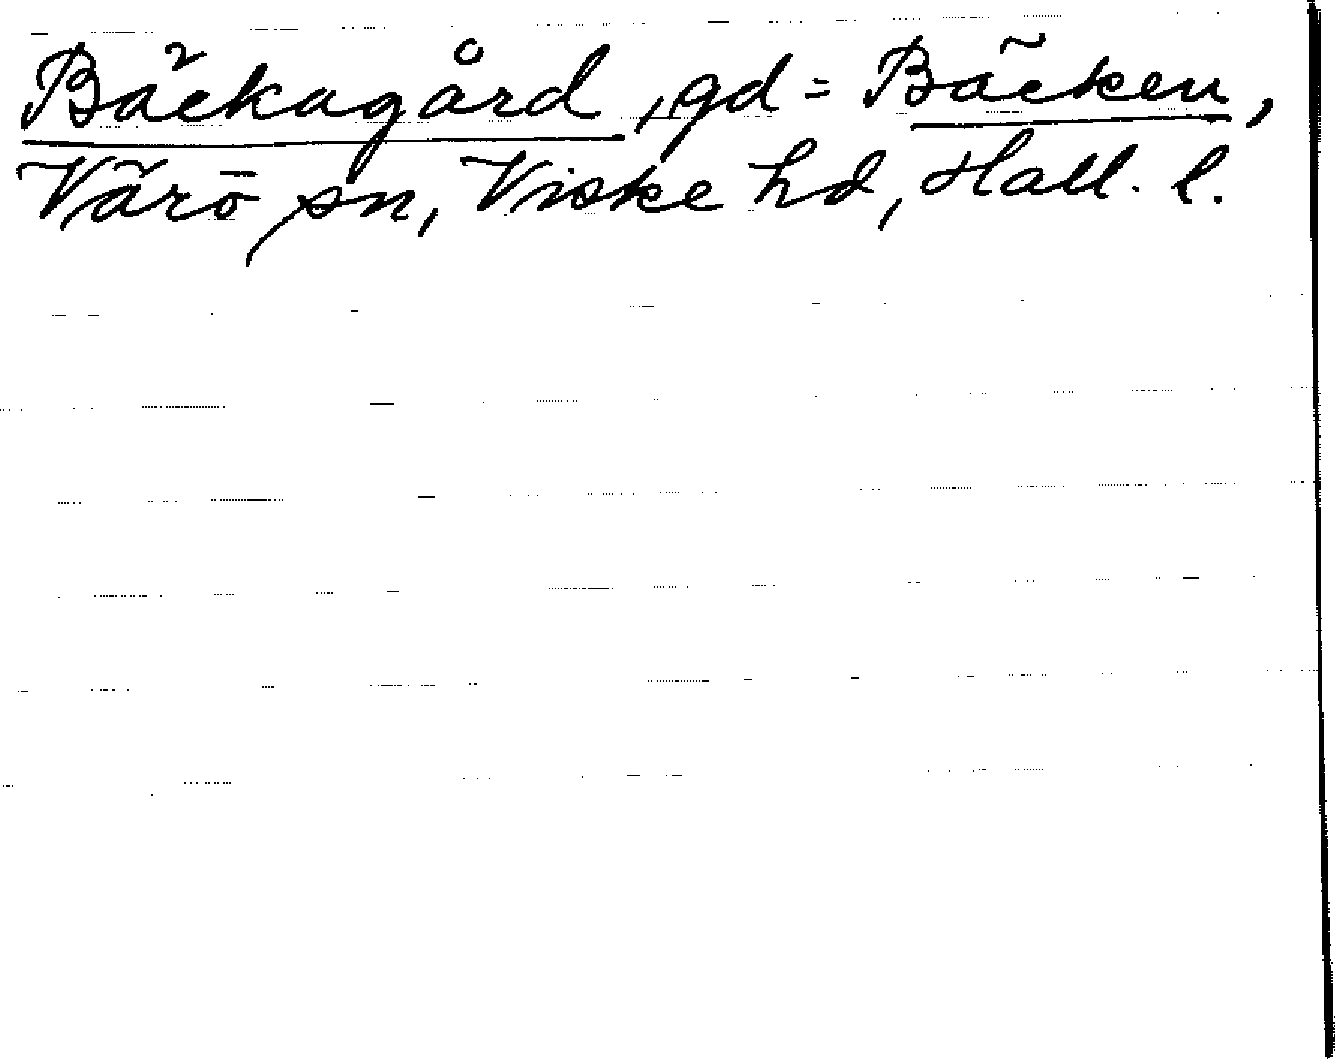 Bäckagård, gd = Bäcken,
Värö sn, Viske hd, Hall. l.